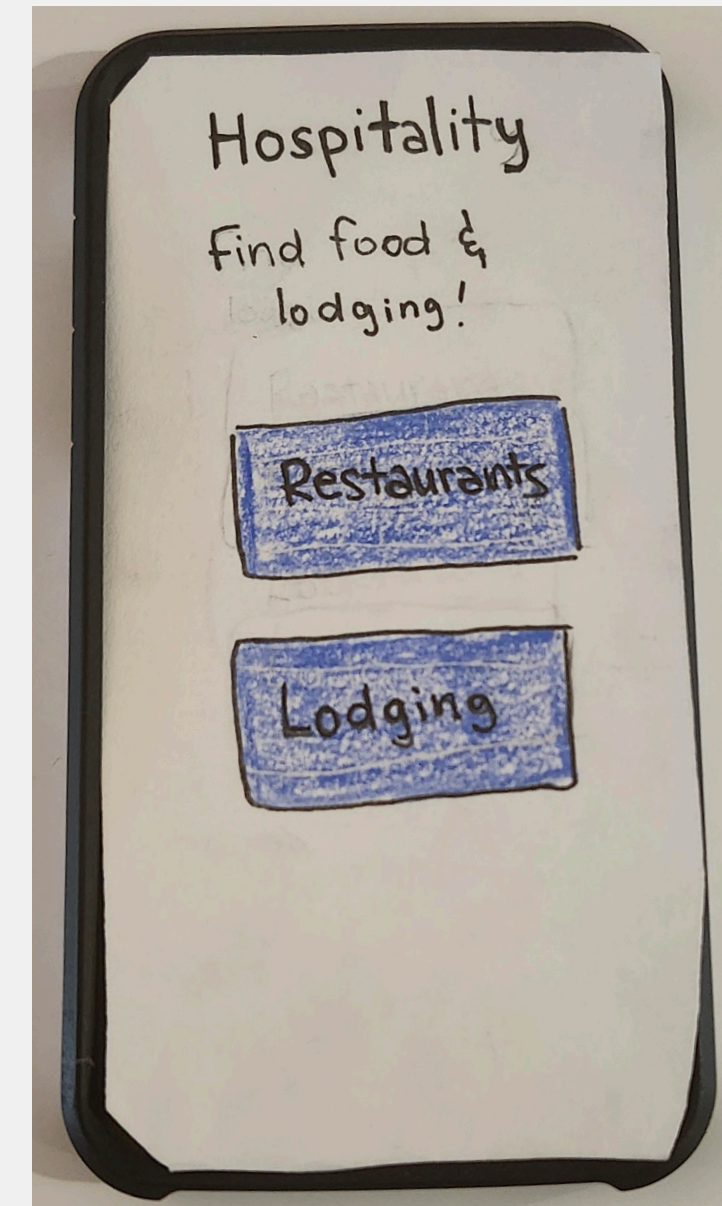 Hospitality
Find food &
lodging!
Restaurants
Lodging